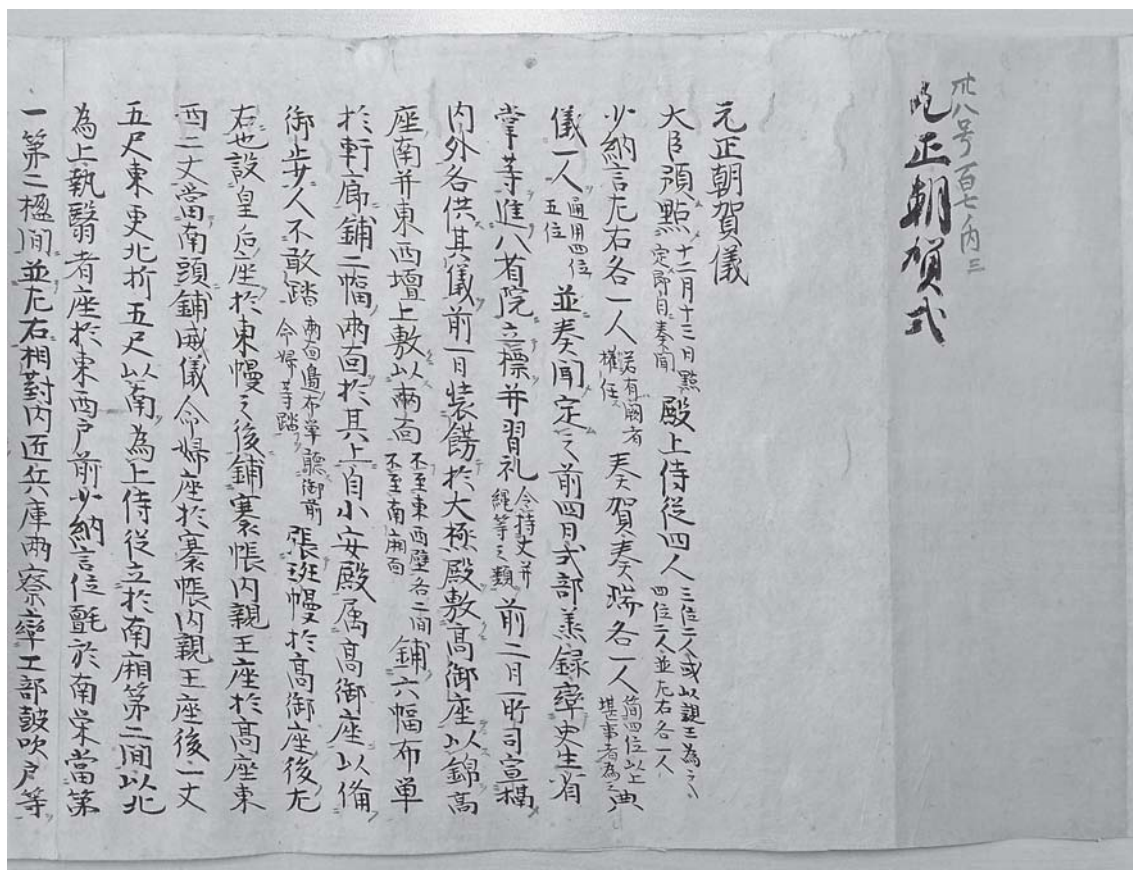 卅八号百七内三
元正朝賀式
元正朝賀儀
大臣預點十二月十三日點定即日奏聞殿上侍従四人三位二人或以親王為之四位二人並左右各一人
少納言左右各一人若有闕者權任奏賀奏瑞各一人簡四位以上堪事者為之典
儀一人通用四位五位並奏聞定之前四日式部丞録率史生省
掌等進八省院立標并習礼令持丈并縄等之類前二日所司宣摂
内外各供其儀前一日装餝於大極殿敷高御座以錦高
座南并東西壇上敷以兩面不至東西壁各二間不至南廂面鋪六幅布単
於軒廊鋪二幅兩面於其上自小安殿属高御座以備
御歩人不敢踏兩面邊布単聽御前命婦等踏張班幔於高御座後左
右也設皇后座於東幔之後鋪褰帳内親王座於高座東
西二丈當南頭鋪威儀命婦座於褰帳内親王座後一丈
五尺東更北折五尺以南為上侍従立於南廂第二間以北
為上執翳者座於東西戸前少納言位氈於南栄當第
一第二楹間並左右相對内近兵庫兩寮率工部鼓吹戸等